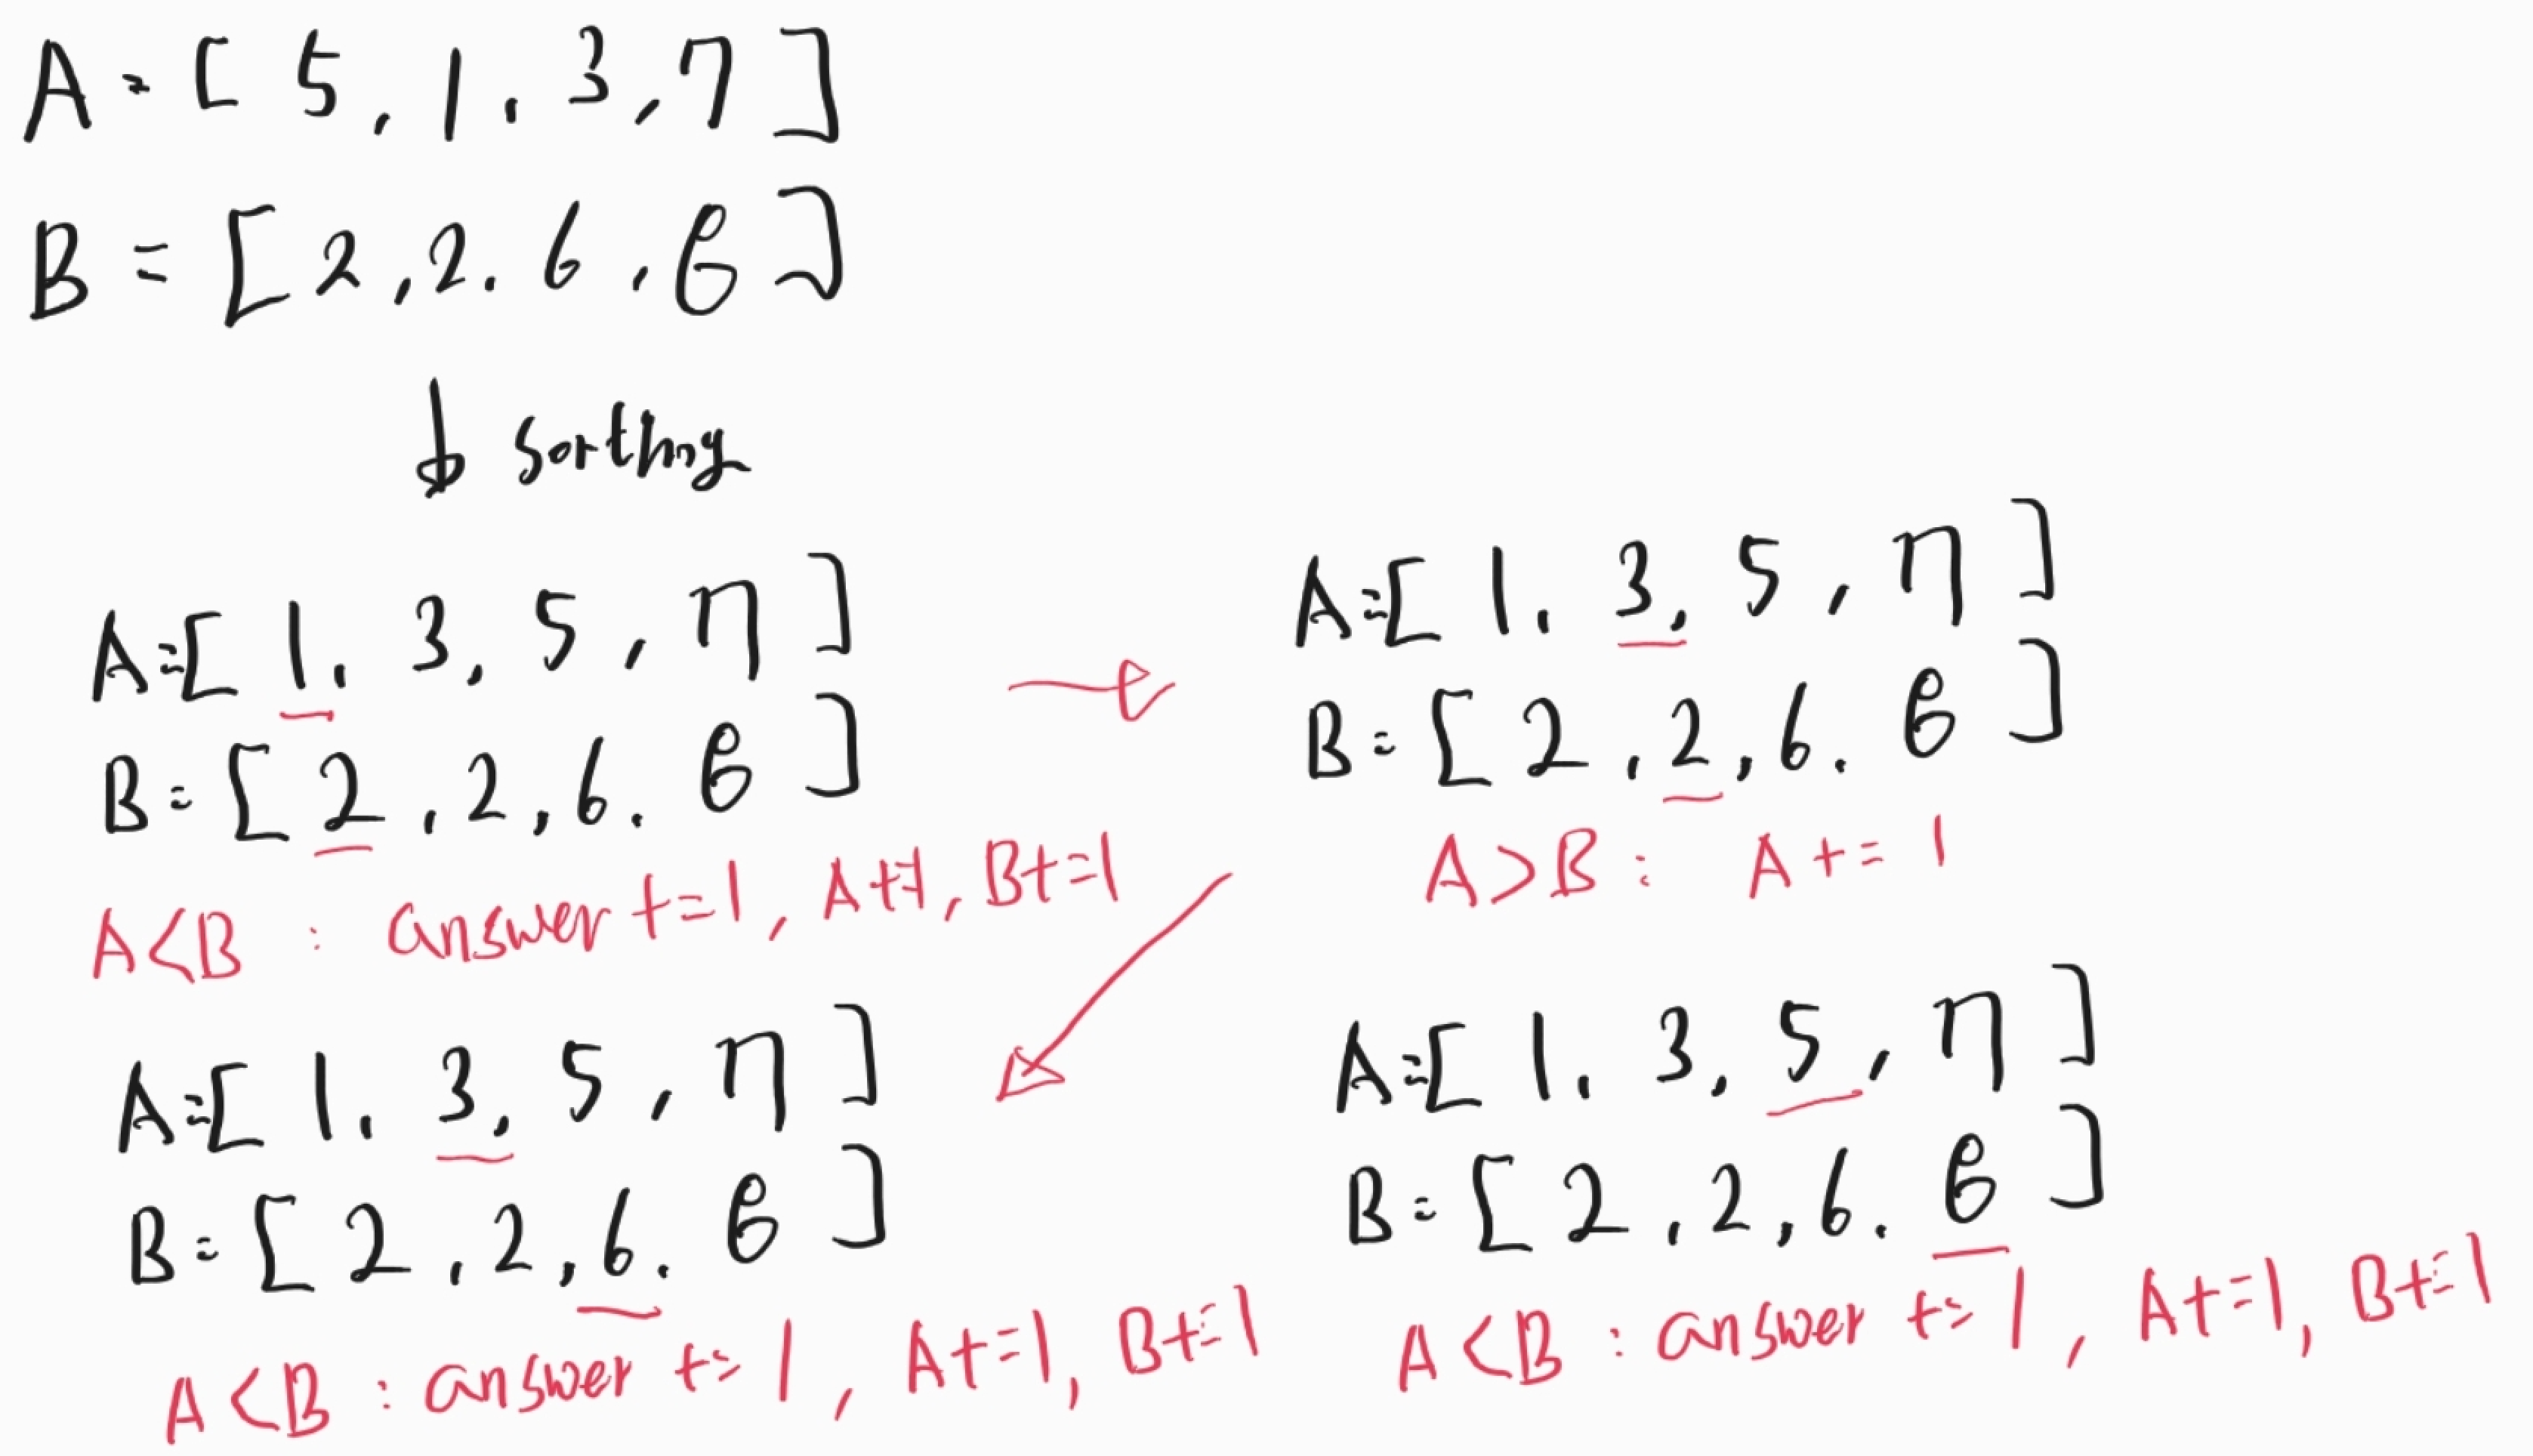 A = [ 5, 1, 3, 7 ]
B = [ 2, 2, 6, 8 ]
sorting
A = [ 1, 3, 5, 7 ]
B = [ 2, 2, 6, 8 ]
A<B : answer +=1, A+=1, B+=1
A = [ 1, 3, 5, 7 ]
B = [ 2, 2, 6, 8 ]
A>B : A += 1
A = [ 1, 3, 5, 7 ]
B = [ 2, 2, 6, 8 ]
A<B : answer += 1, A+=1, B+=1
A = [ 1, 3, 5, 7 ]
B = [ 2, 2, 6, 8 ]
A<B : answer += 1, A+=1, B+=1